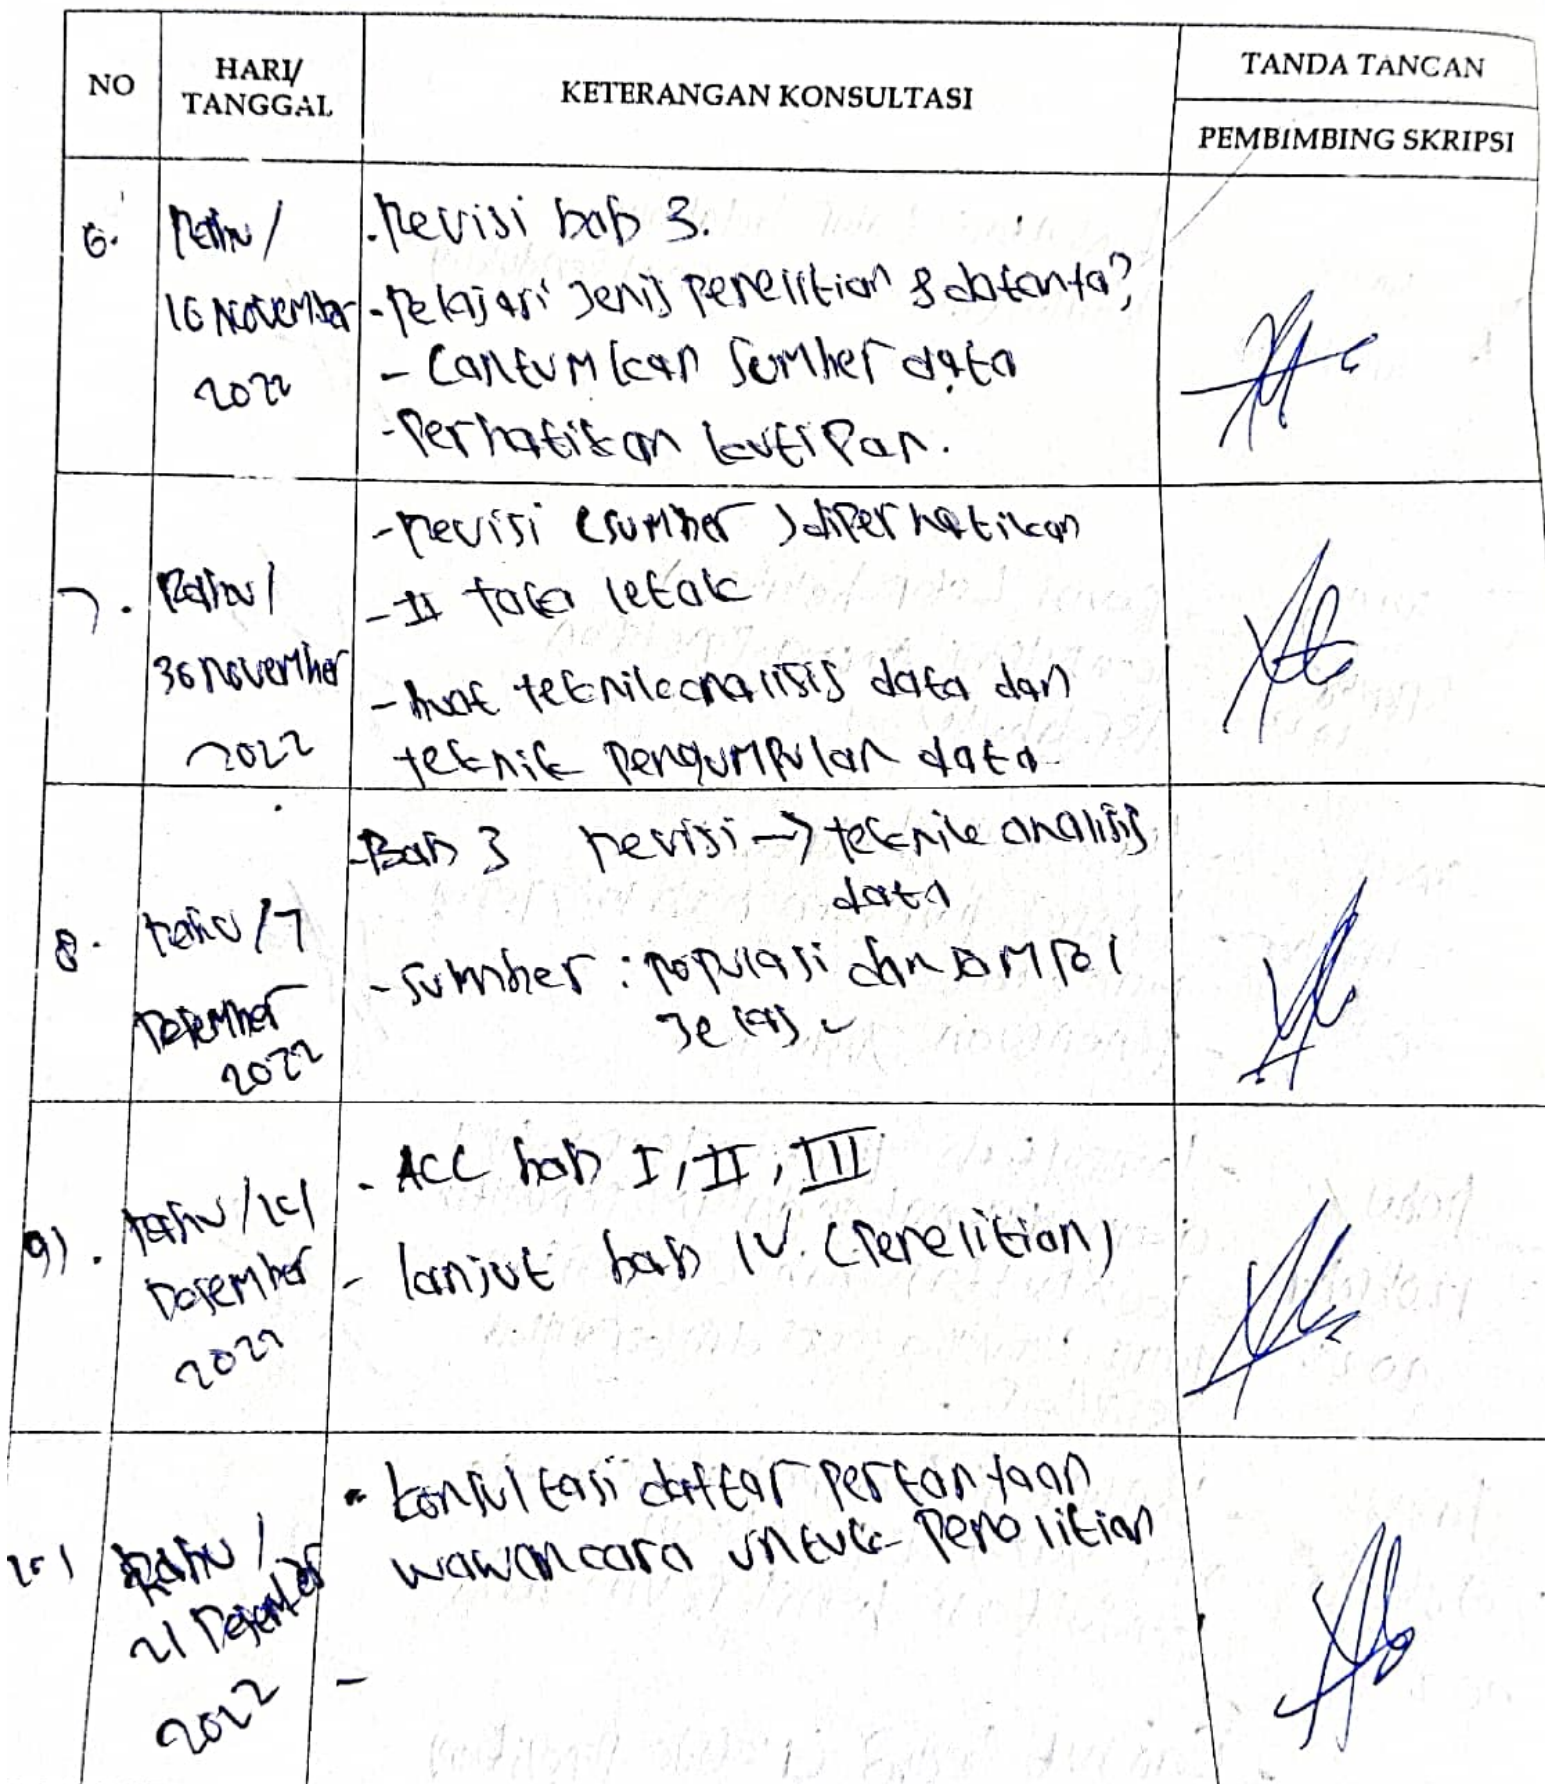 NO
HARI/
TANGGAL
KETERANGAN KONSULTASI
TANDA TANGAN
PEMBIMBING SKRIPSI
6.
Rabu /
16 November
2022
- Revisi bab 3.
- Pelajari jenis penelitian & datanya?
- Cantumkan sumber data
- Perhatikan kutipan.
7.
Rabu /
30 November
2022
- Revisi (sumber) diperhatikan
- II tata letak
- buat teknik analisis data dan
teknik pengumpulan data
8.
Rabu / 7
Desember
2022
- Bab 3 revisi → teknik analisis
data
- Sumber : populasi dan
jelas
9).
Rabu / 14
Desember
2022
- ACC bab I, II, III
- lanjut bab IV. (Penelitian)
Rabu /
21 Desember
2022
- konsultasi daftar pertanyaan
wawancara untuk penelitian
-